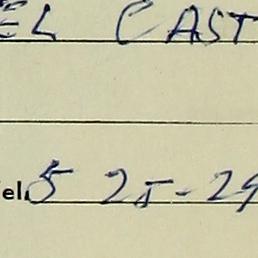 EL CAST
el. 5 25-29